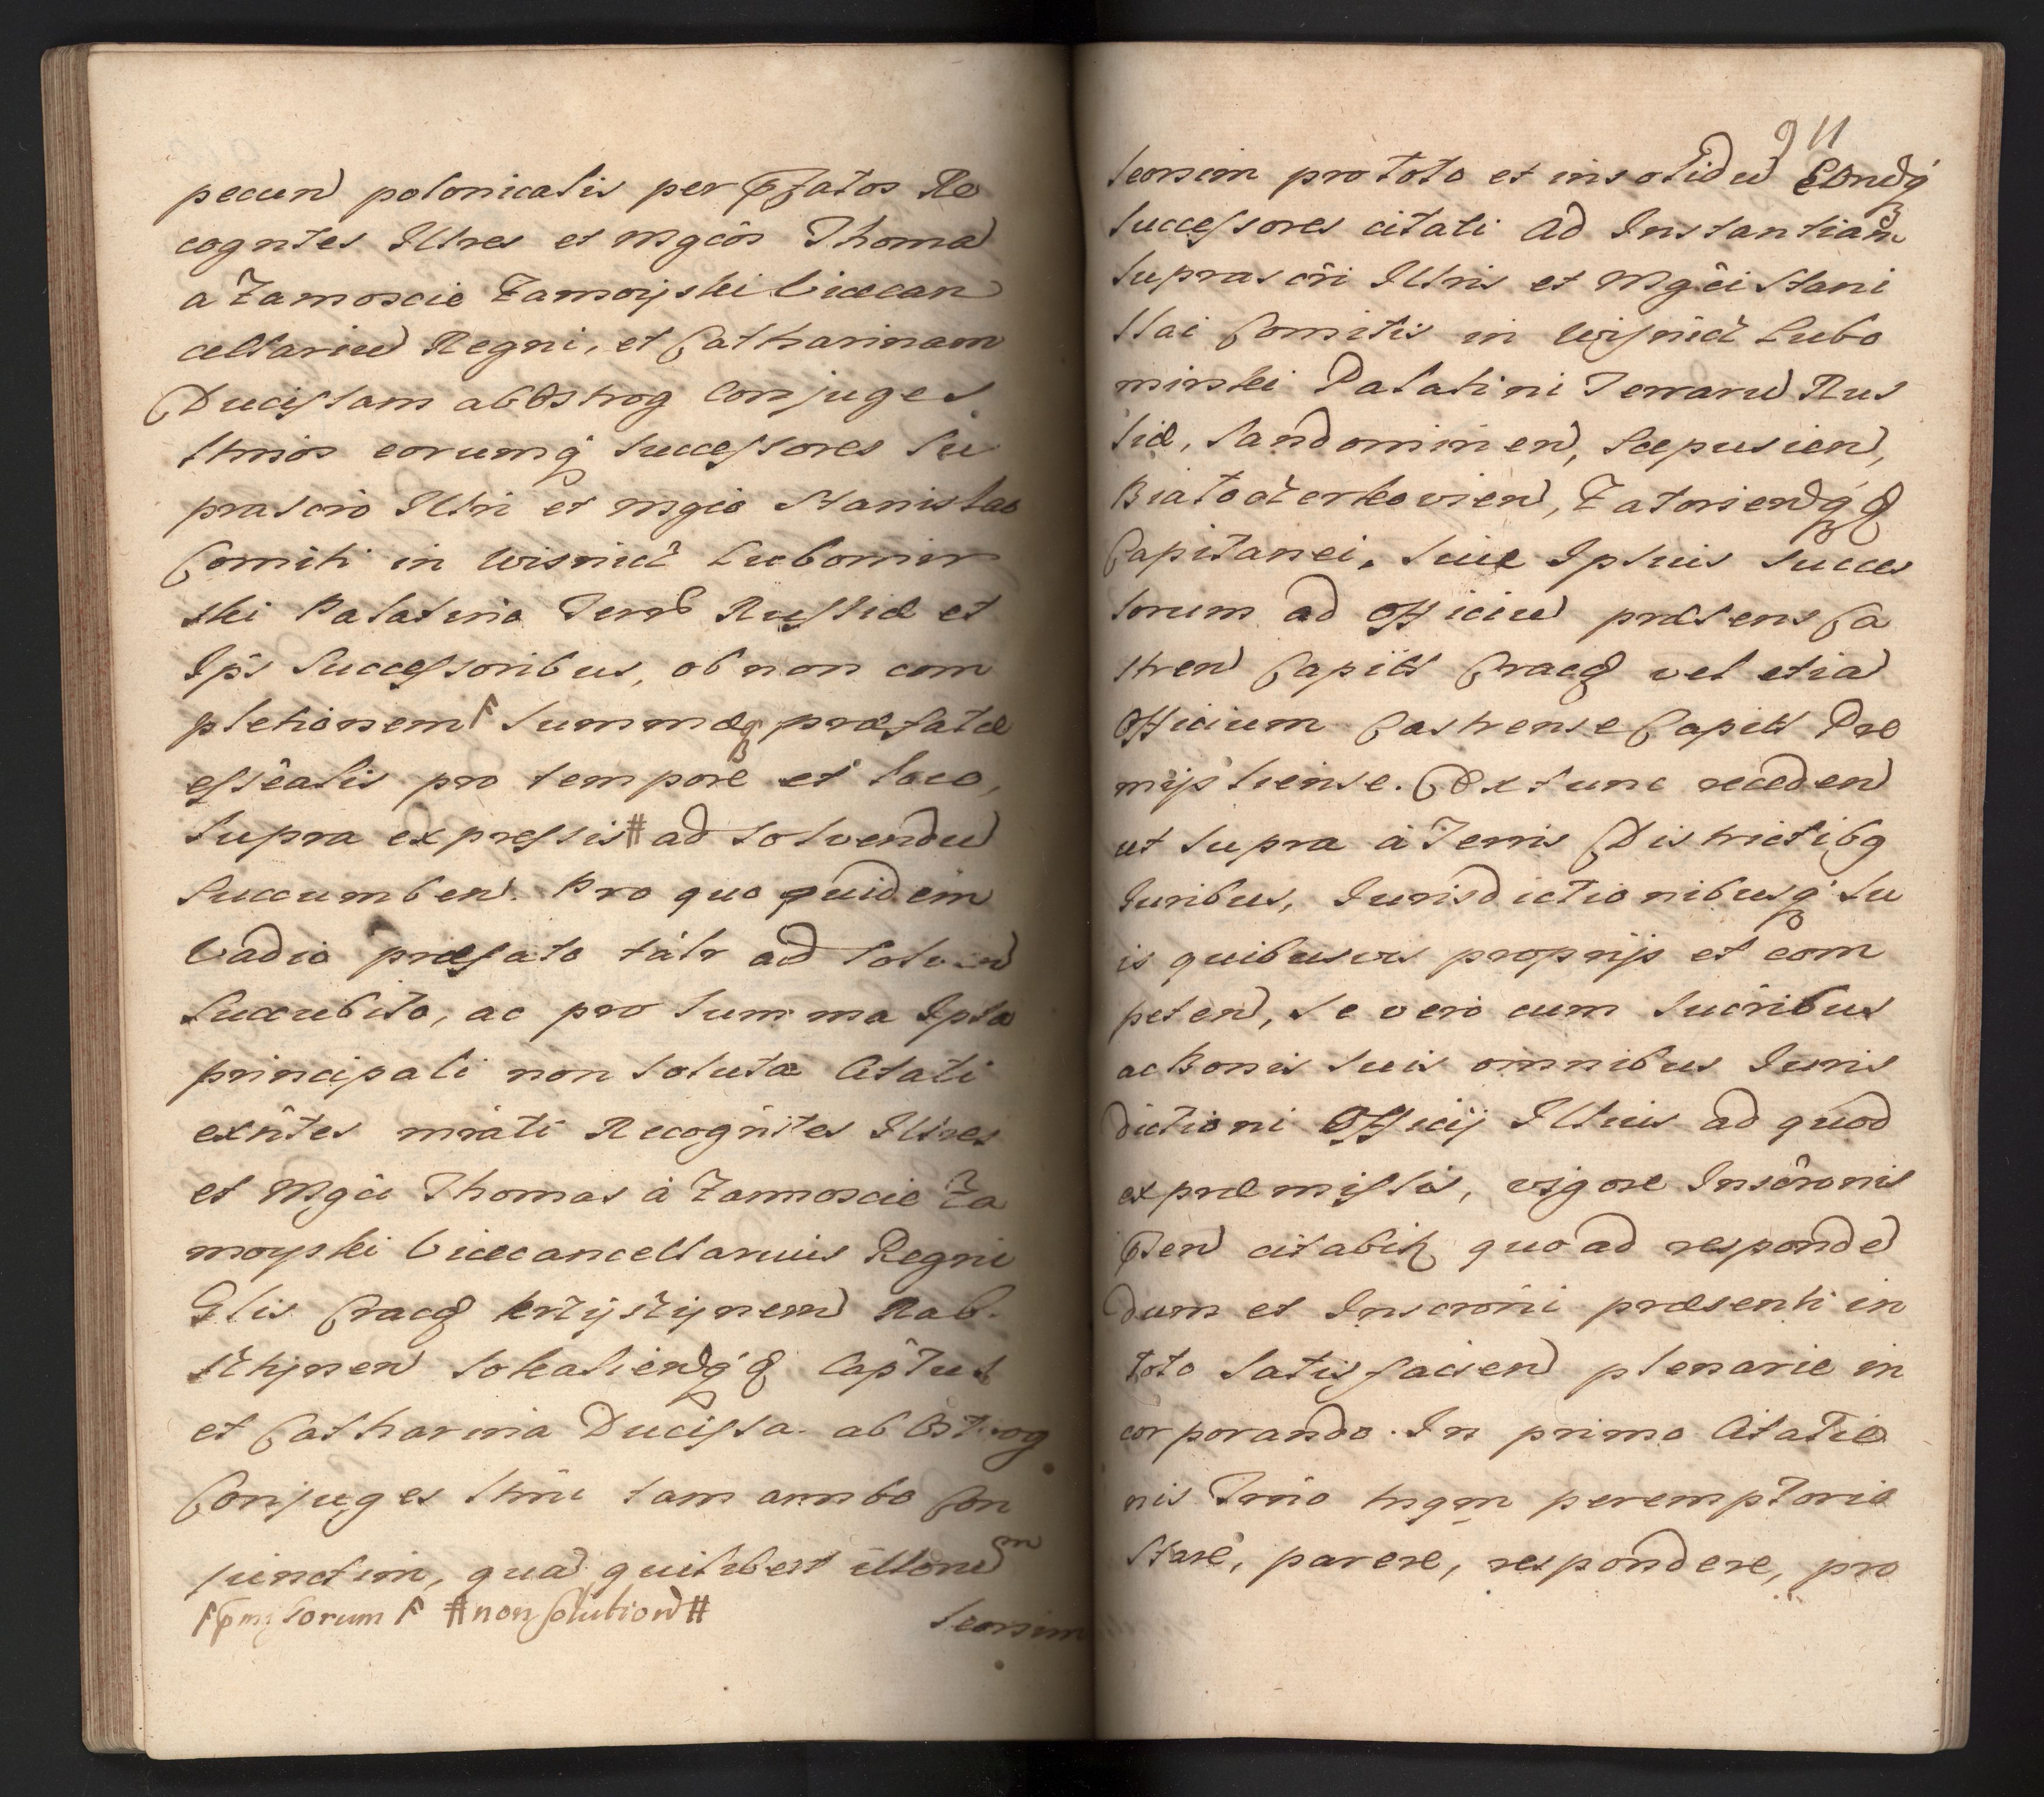 pecun polonicalis per pfatos Re
cogntes Illres et Mgcos Thoma
a Zamoscie Zamoyski Vicecan
cellariu Regni, et Catharinam
Ducissam ab Ostrog Conjuges
thrios eorumq successores Su
prascrio Illri et Mgco Stanislao
Comiti in Wisnicz Lubomir
ski Palatino Terr Russiæ et
Ips Successoribus, ob non com
pletionem summæq præfatæ
essealis pro tempore et loco,
supra expressis # ad solvendu
succumben. Pro quo quidem
Vadio præfato talr ad solven
succubito, ac pro summa Ipsa
principali non soluta Citati
exntes mrati Recogntes Illres
et Mgci Thomas à Zamoscie Za
moyski Vicecancellarius Regni
Glis Crac Krzyszynen Rab
sztynen Sokalienq Captus
et Catharina Ducissa ab Ostrog
Conjuges thrii tam ambo Con
junctim, qua quilibet illoru m
pmissorum # non solution #
Seorsim
911
Seorsim pro toto et insolidu Eorudq
Successores citati ad Instantiam
suprascri Illris et Mgci Stani
slai Comitis in Wisnicz Lubo
mirski Palatini Terraru Rus
siæ, Sandomirien, Scepusien,
Bialocerkovien, Zatorienq
Capitanei, siue Ipsius succes
sorum ad officiu præsens Ca
stren Capitl Crac vel etia
Officium Castrense Capitl Pre
mysliense. Extunc receden
ut supra à Terris Districtibq
Juribus, Jurisdictionibusq su
is quibusvis proprijs et com
peten, se vero cum sucribus
ac Bonis suis omnibus Juris
dictioni Officij Illius ad quod
ex præmissis, vigore Inscronis
pen citabitz quo ad responde
dum et Inscroni præsenti in
toto satisfacien plenarie in
corporando. In primo Citatio
nis Trno tnqm peremptorio
stare, parere, respondere, pro